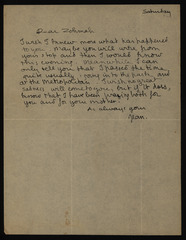 Saturday
Dear Tolemah
I wish I knew more what has happened
to you. Maybe you will write from
your stop and then I would know
this evening. Meanwhile I can
only tell you that I passed the time,
quite usually, some in the park, and
at the Metropolitan.
will come to you, but if it does,
know that I have been praying both for
you and for your mother.
As always your
Jean